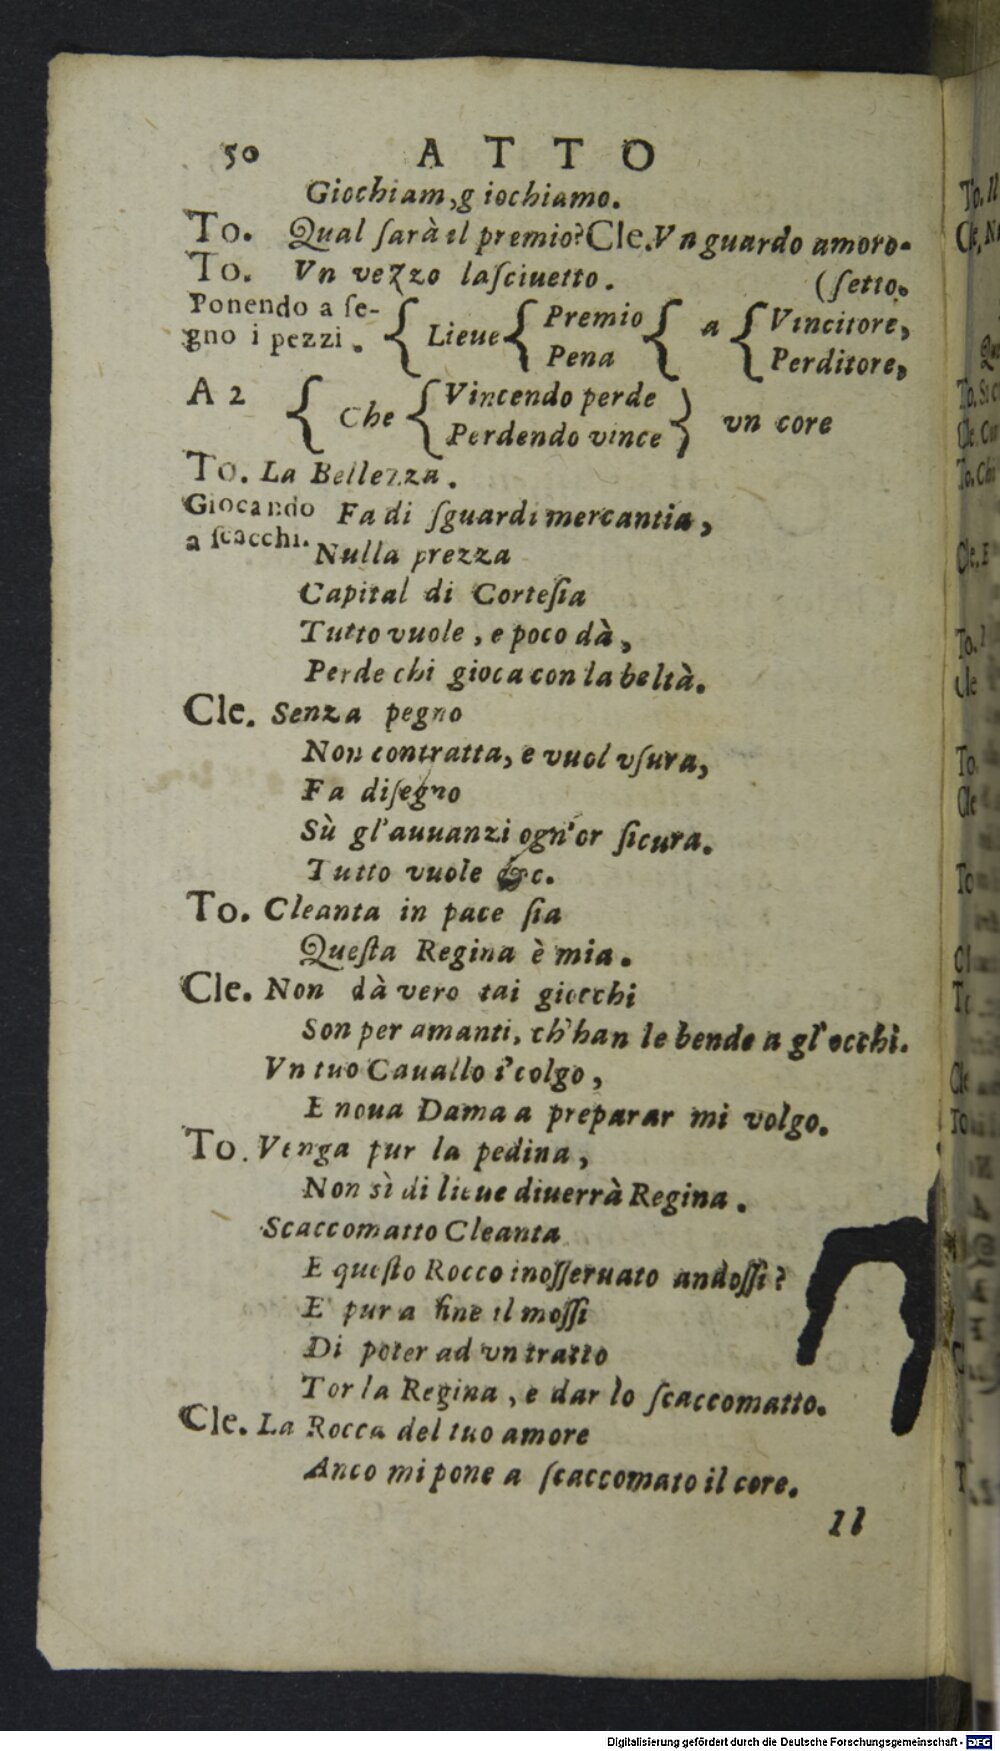 50 ATTO
Giochiam, g iochiamo.
To. Qual ſarà il premio? Cle. Vn guardo amoro-
To. Vn vezzo laſciuetto. (ſetto.
Ponendo a ſe-
gno i pezzi. { Lieue { Premio { a { Vincitore,
Pena Perditore,
A 2 { Che { Vincendo perde } vn core
Perdendo vince
To. La Bellezza.
Giocando Fa di ſguardi mercantia,
a ſcacchi. Nulla prezza
Capital di Corteſia
Tutto vuole, e poco dà,
Perde chi gioca con la beltà.
Cle. Senza pegno
Non contratta, e vuol vſura,
Fa diſegno
Sù gl'auuanzi ogn'or ſicura.
Tutto vuole &c.
To. Cleanta in pace ſia
Queſta Regina è mia.
Cle. Non dà vero tai giocchi
Son per amanti, ch'han le bende a gl'occhi.
Vn tuo Cauallo i' colgo,
E noua Dama a preparar mi volgo.
To. Venga pur la pedina,
Non sì di lieue diuerrà Regina.
Scaccomatto Cleanta
E queſto Rocco inoſſeruato andoſſi?
E pur a fine il moſſi
Di poter ad vn tratto
Tor la Regina, e dar lo ſcaccomatto.
Cle. La Rocca del tuo amore
Anco mi pone a ſcaccomato il core.
Il
Digitalisierung gefördert durch die Deutsche Forschungsgemeinschaft - DFG